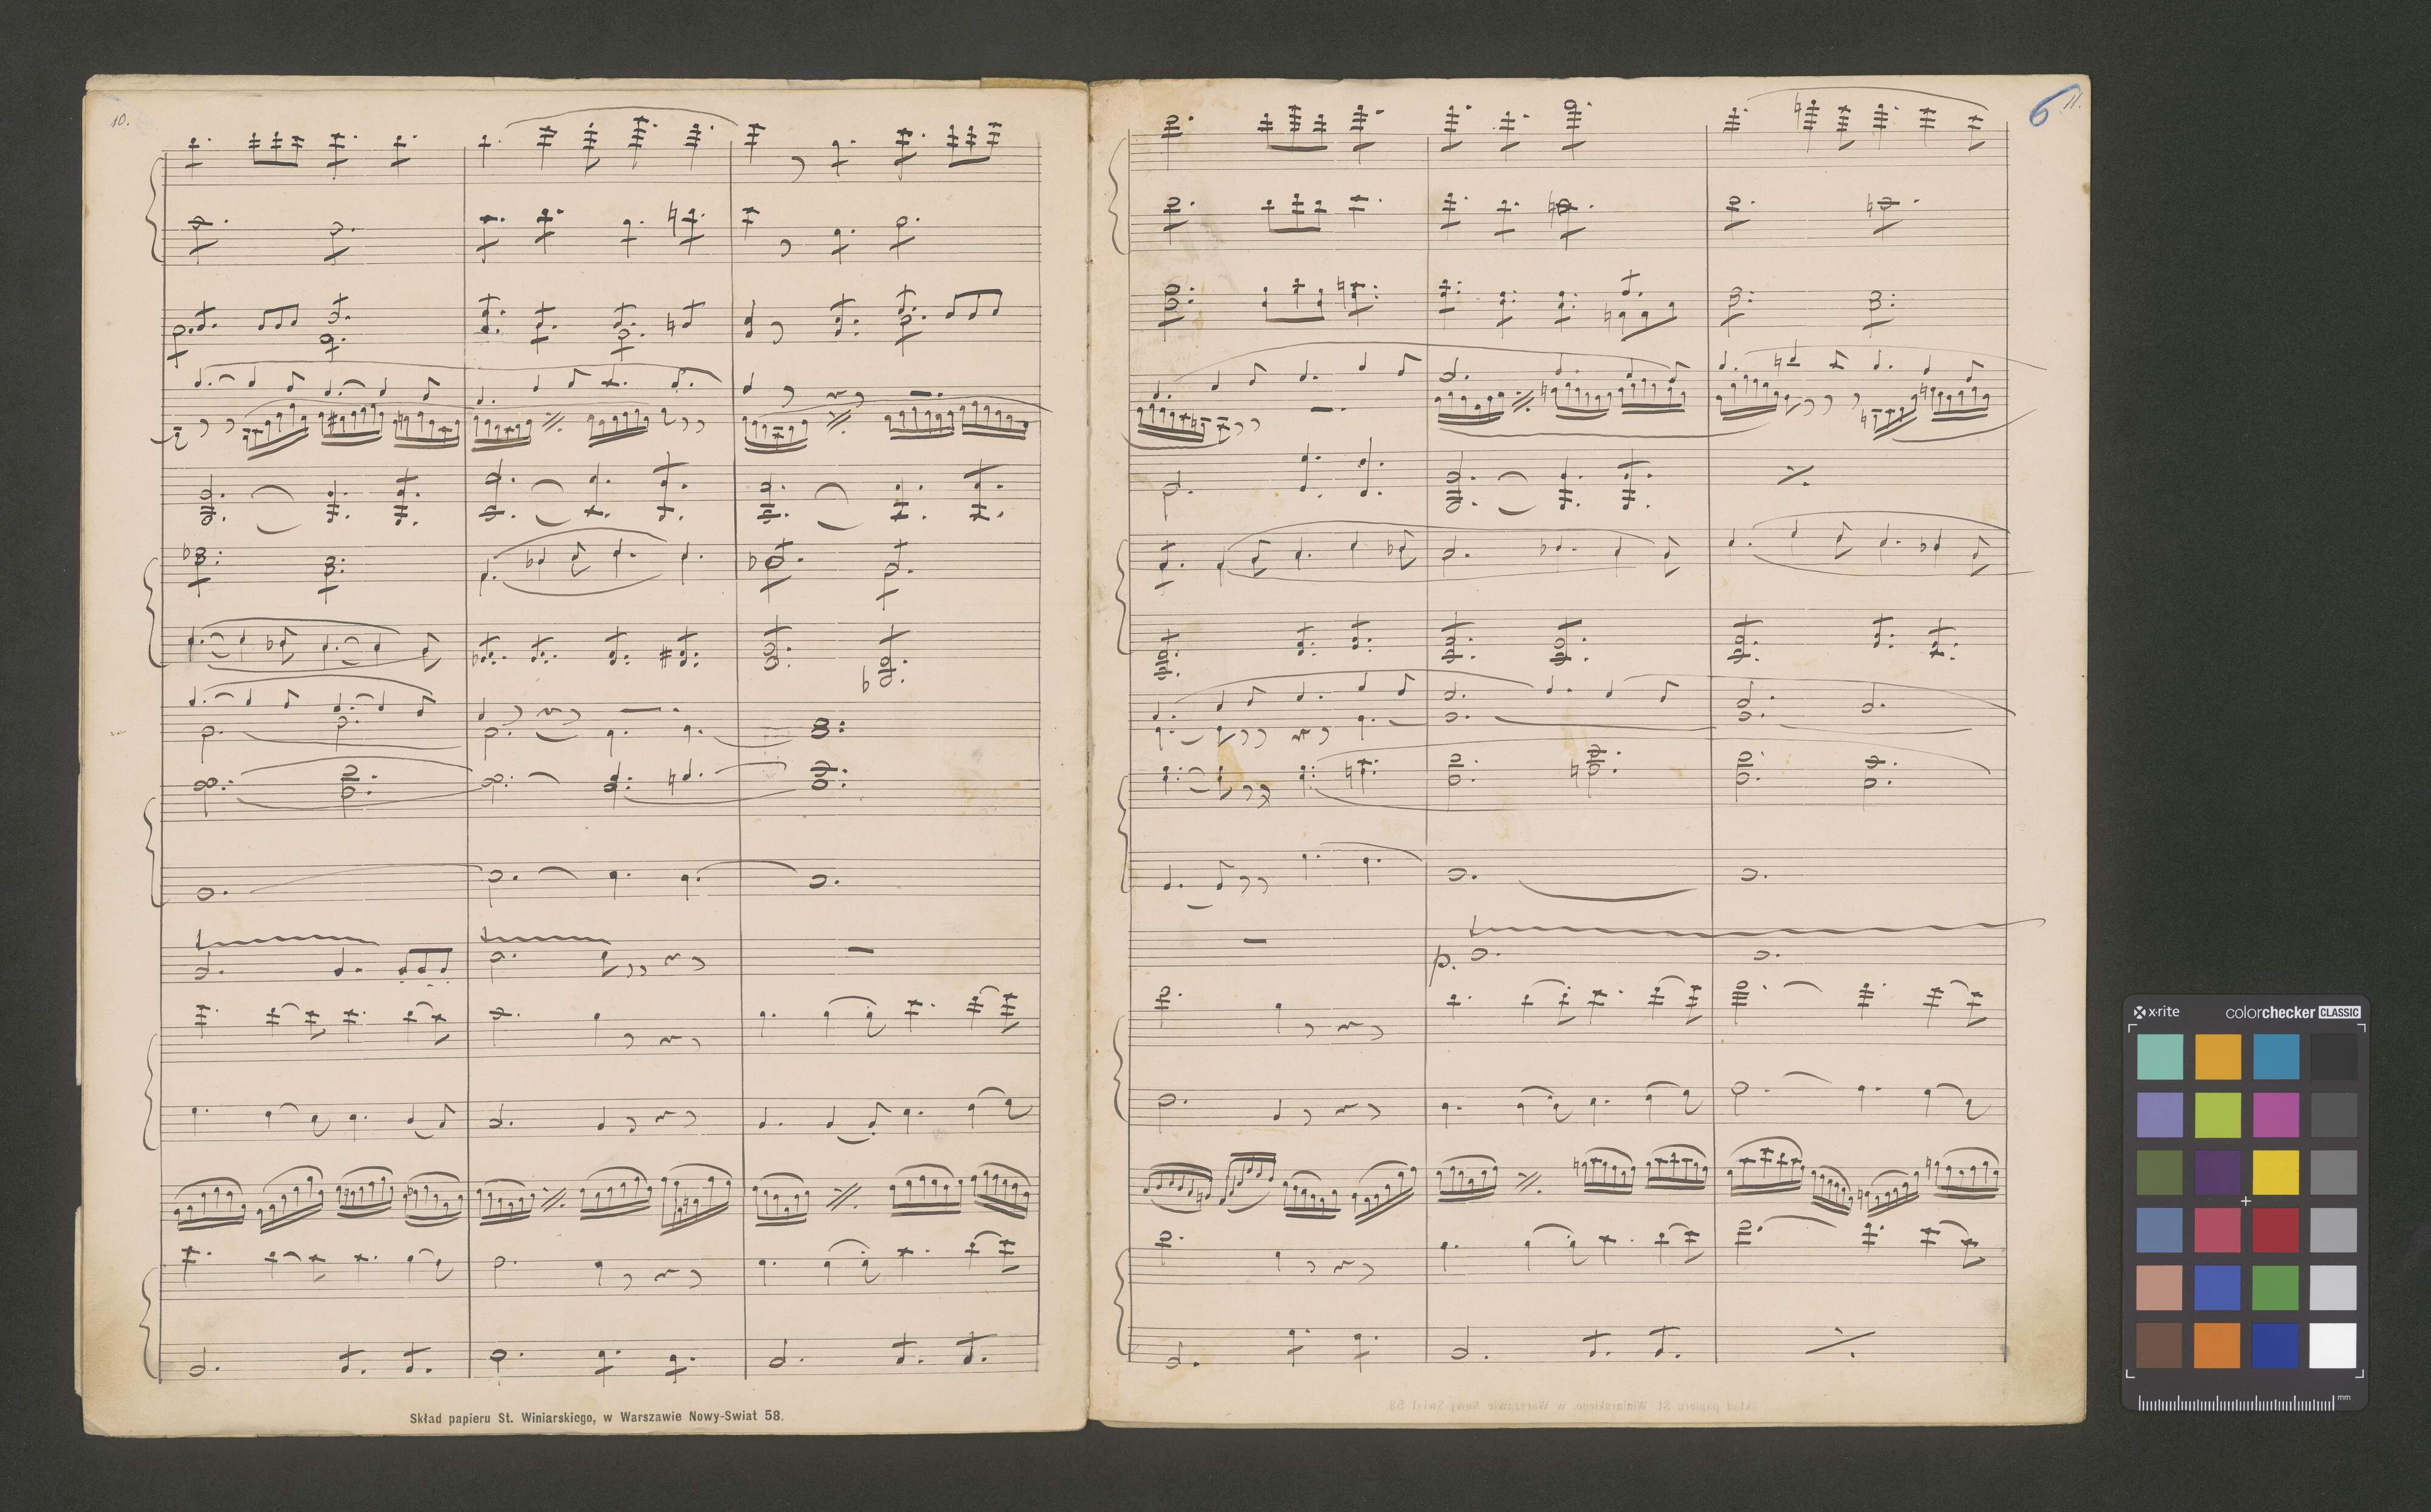 10.
11.
6
p.
Skład papieru St. Winiarskiego, w Warszawie Nowy-Swiat 58.
x-rite colorchecker CLASSIC
mm